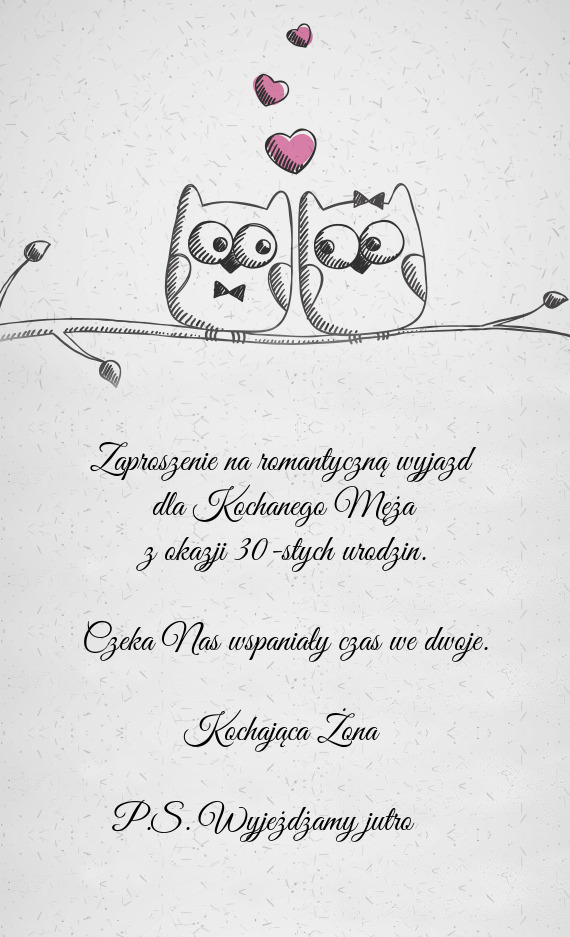 Zaproszenie na romantyczną wyjazd
dla Kochanego Męża
z okazji 30-stych urodzin.
Czeka Nas wspaniały czas we dwoje.
Kochająca Żona
P.S. Wyjeżdżamy jutro